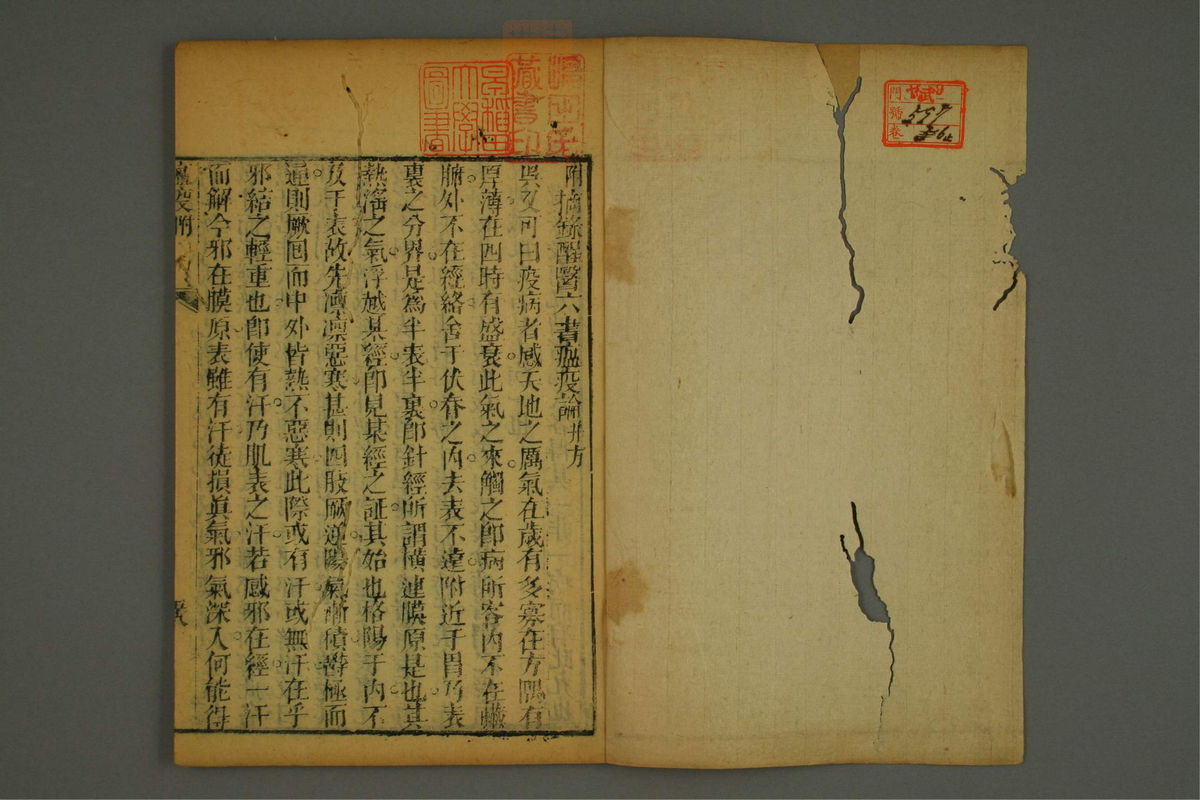 附摘錄醒醫六書瘟疫論并方
吳又可曰疫病者感天地之厲氣在歲有多寡在方隅有
厚薄在四時有盛衰此氣之來觸之即病所客內不在臟
腑外不在經絡舍于伏脊之內去表不遠附近于胃乃表
裏之分界是為半表半裏即針經所謂橫連膜原是也其
熱滛之氣浮越某經即見某經之証其始也格陽于內不
及于表故先凛凛惡寒甚則四肢厥逆陽氣漸積欝極而
通則厥囘而中外皆熱不惡寒此際或有汗或無汗在乎
邪結之輕重也即使有汗乃肌表之汗若感邪在經一汗
而解今邪在膜原表雖有汗徒損眞氣邪氣深入何能得
瘟疫附
早稲田大學圖書
藏書印
門
號
卷